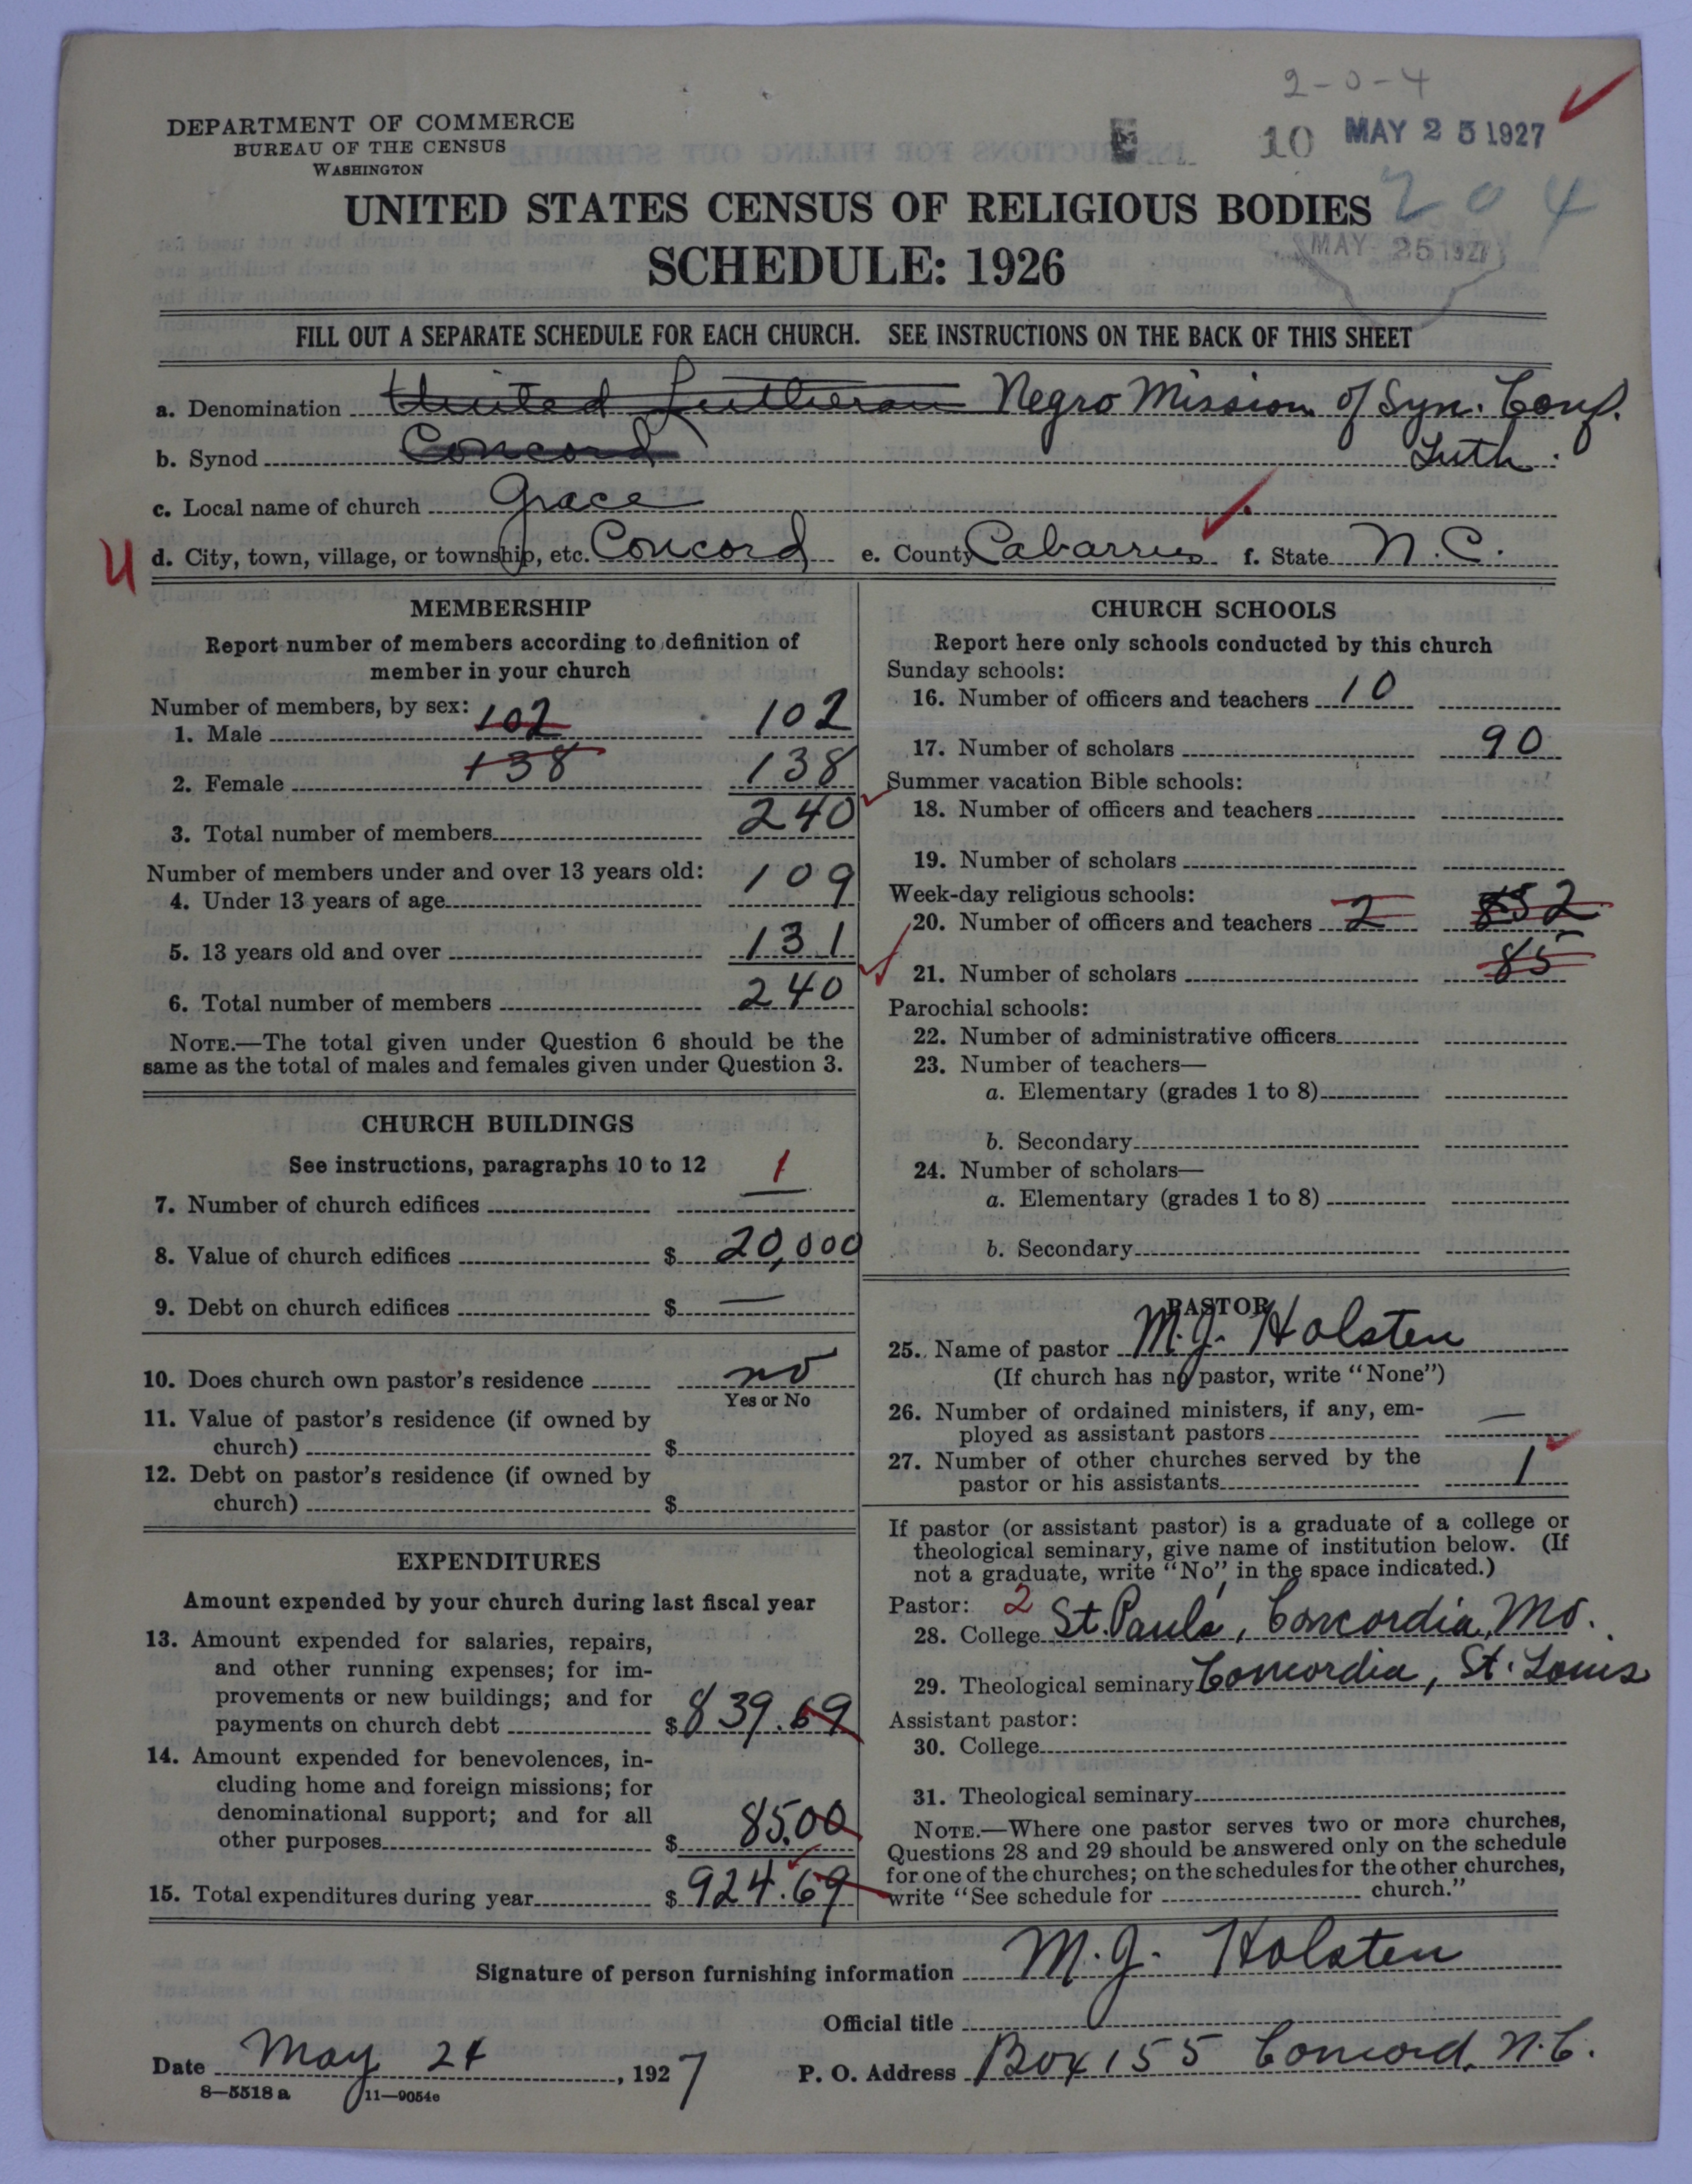 2-0-4
DEPARTMENT OF COMMERCE
BUREAU OF THE CENSUS
WASHINGTON
10 MAY 25 1927
204
UNITED STATES CENSUS OF RELIGIOUS BODIES
MAY 25 1927
SCHEDULE: 1926
FILL OUT A SEPARATE SCHEDULE FOR EACH CHURCH. SEE INSTRUCTIONS ON THE BACK OF THIS SHEET
a. Denomination United Lutheran Negro Mission of Syn. Conf.
b. Synod Concord Luth.
c. Local name of church Grace
d. City, town, village, or township, etc. Concord e. County Cabarrus f. State N.C.
MEMBERSHIP
Report number of members according to definition of
member in your church
Number of members, by sex:
1. Male 102 102
2. Female 138 138
3. Total number of members 240
Number of members under and over 13 years old:
4. Under 13 years of age 109
5. 13 years old and over 131
6. Total number of members 240
NOTE.—The total given under Question 6 should be the
same as the total of males and females given under Question 3.
CHURCH BUILDINGS
See instructions, paragraphs 10 to 12
7. Number of church edifices 1
8. Value of church edifices $ 20,000
9. Debt on church edifices $ —
10. Does church own pastor's residence no
Yes or No
11. Value of pastor's residence (if owned by
church) $
12. Debt on pastor's residence (if owned by
church) $
EXPENDITURES
Amount expended by your church during last fiscal year
13. Amount expended for salaries, repairs,
and other running expenses; for im-
provements or new buildings; and for
payments on church debt $ 839.69
14. Amount expended for benevolences, in-
cluding home and foreign missions; for
denominational support; and for all
other purposes $ 85.00
15. Total expenditures during year $ 924.69
CHURCH SCHOOLS
Report here only schools conducted by this church
Sunday schools:
16. Number of officers and teachers 10
17. Number of scholars 90
Summer vacation Bible schools:
18. Number of officers and teachers
19. Number of scholars
Week-day religious schools:
20. Number of officers and teachers 2 2
21. Number of scholars 85
Parochial schools:
22. Number of administrative officers
23. Number of teachers—
a. Elementary (grades 1 to 8)
b. Secondary
24. Number of scholars—
a. Elementary (grades 1 to 8)
b. Secondary
PASTOR
25. Name of pastor M.J. Holsten
(If church has no pastor, write "None")
26. Number of ordained ministers, if any, em-
ployed as assistant pastors —
27. Number of other churches served by the
pastor or his assistants 1
If pastor (or assistant pastor) is a graduate of a college or
theological seminary, give name of institution below. (If
not a graduate, write "No" in the space indicated.)
Pastor: 2
28. College St. Paul's, Concordia, Mo.
29. Theological seminary Concordia, St. Louis
Assistant pastor:
30. College
31. Theological seminary
NOTE.—Where one pastor serves two or more churches,
Questions 28 and 29 should be answered only on the schedule
for one of the churches; on the schedules for the other churches,
write "See schedule for church."
Signature of person furnishing information M.J. Holsten
Official title
Date May 24, 1927 P. O. Address Box 155 Concord, N.C.
8—5518 a 11—9054e